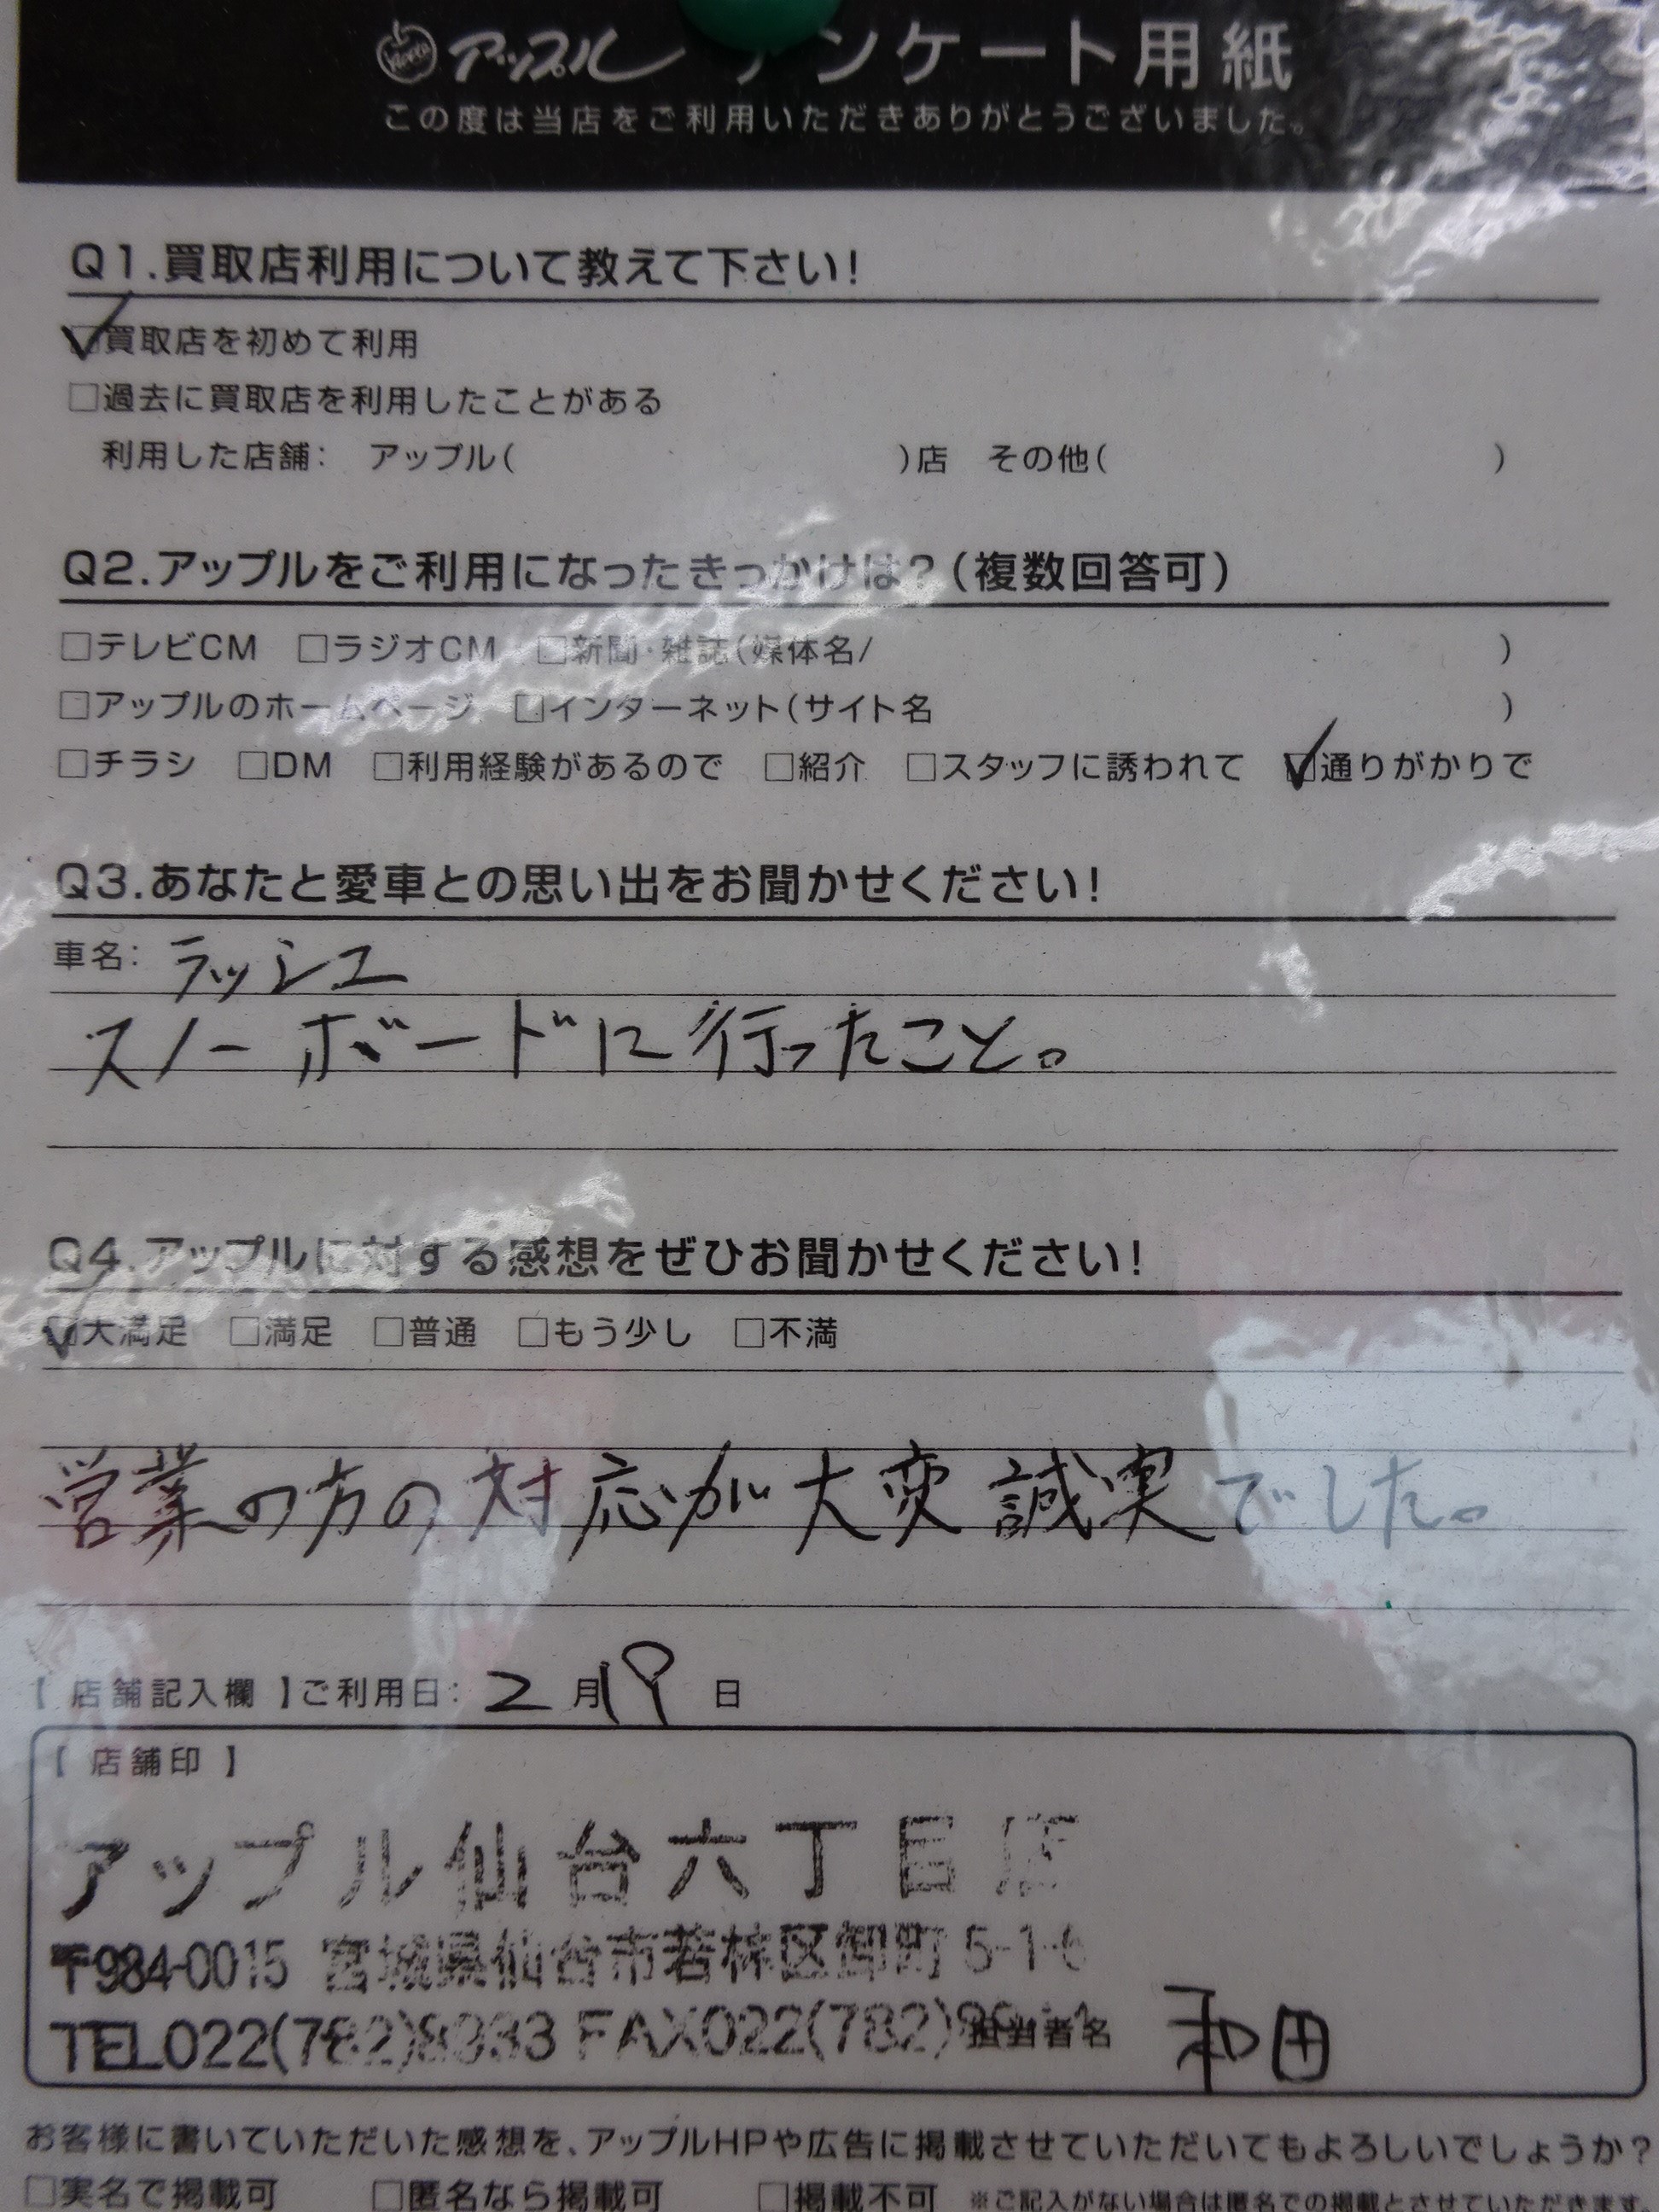 アップル アンケート用紙
この度は当店をご利用いただきありがとうございました。
Q1.買取店利用について教えて下さい!
☑買取店を初めて利用
□過去に買取店を利用したことがある
利用した店舗: アップル( )店 その他( )
Q2.アップルをご利用になったきっかけは?(複数回答可)
□テレビCM □ラジオCM □新聞・雑誌(媒体名/ )
□アップルのホームページ □インターネット(サイト名 )
□チラシ □DM □利用経験があるので □紹介 □スタッフに誘われて ☑通りがかりで
Q3.あなたと愛車との思い出をお聞かせください!
車名: ラッシュ
スノーボードに行ったこと。
Q4.アップルに対する感想をぜひお聞かせください!
☑大満足 □満足 □普通 □もう少し □不満
営業の方の対応が大変誠実でした。
【 店舗記入欄 】ご利用日: 2月19日
【 店舗印 】
アップル仙台六丁目店
〒984-0015 宮城県仙台市若林区卸町5-1-6
TEL022(782) FAX022(782) 担当者名 和田
お客様に書いていただいた感想を、アップルHPや広告に掲載させていただいてもよろしいでしょうか?
□実名で掲載可 □匿名なら掲載可 □掲載不可 ※ご記入がない場合は匿名での掲載とさせていただきます。